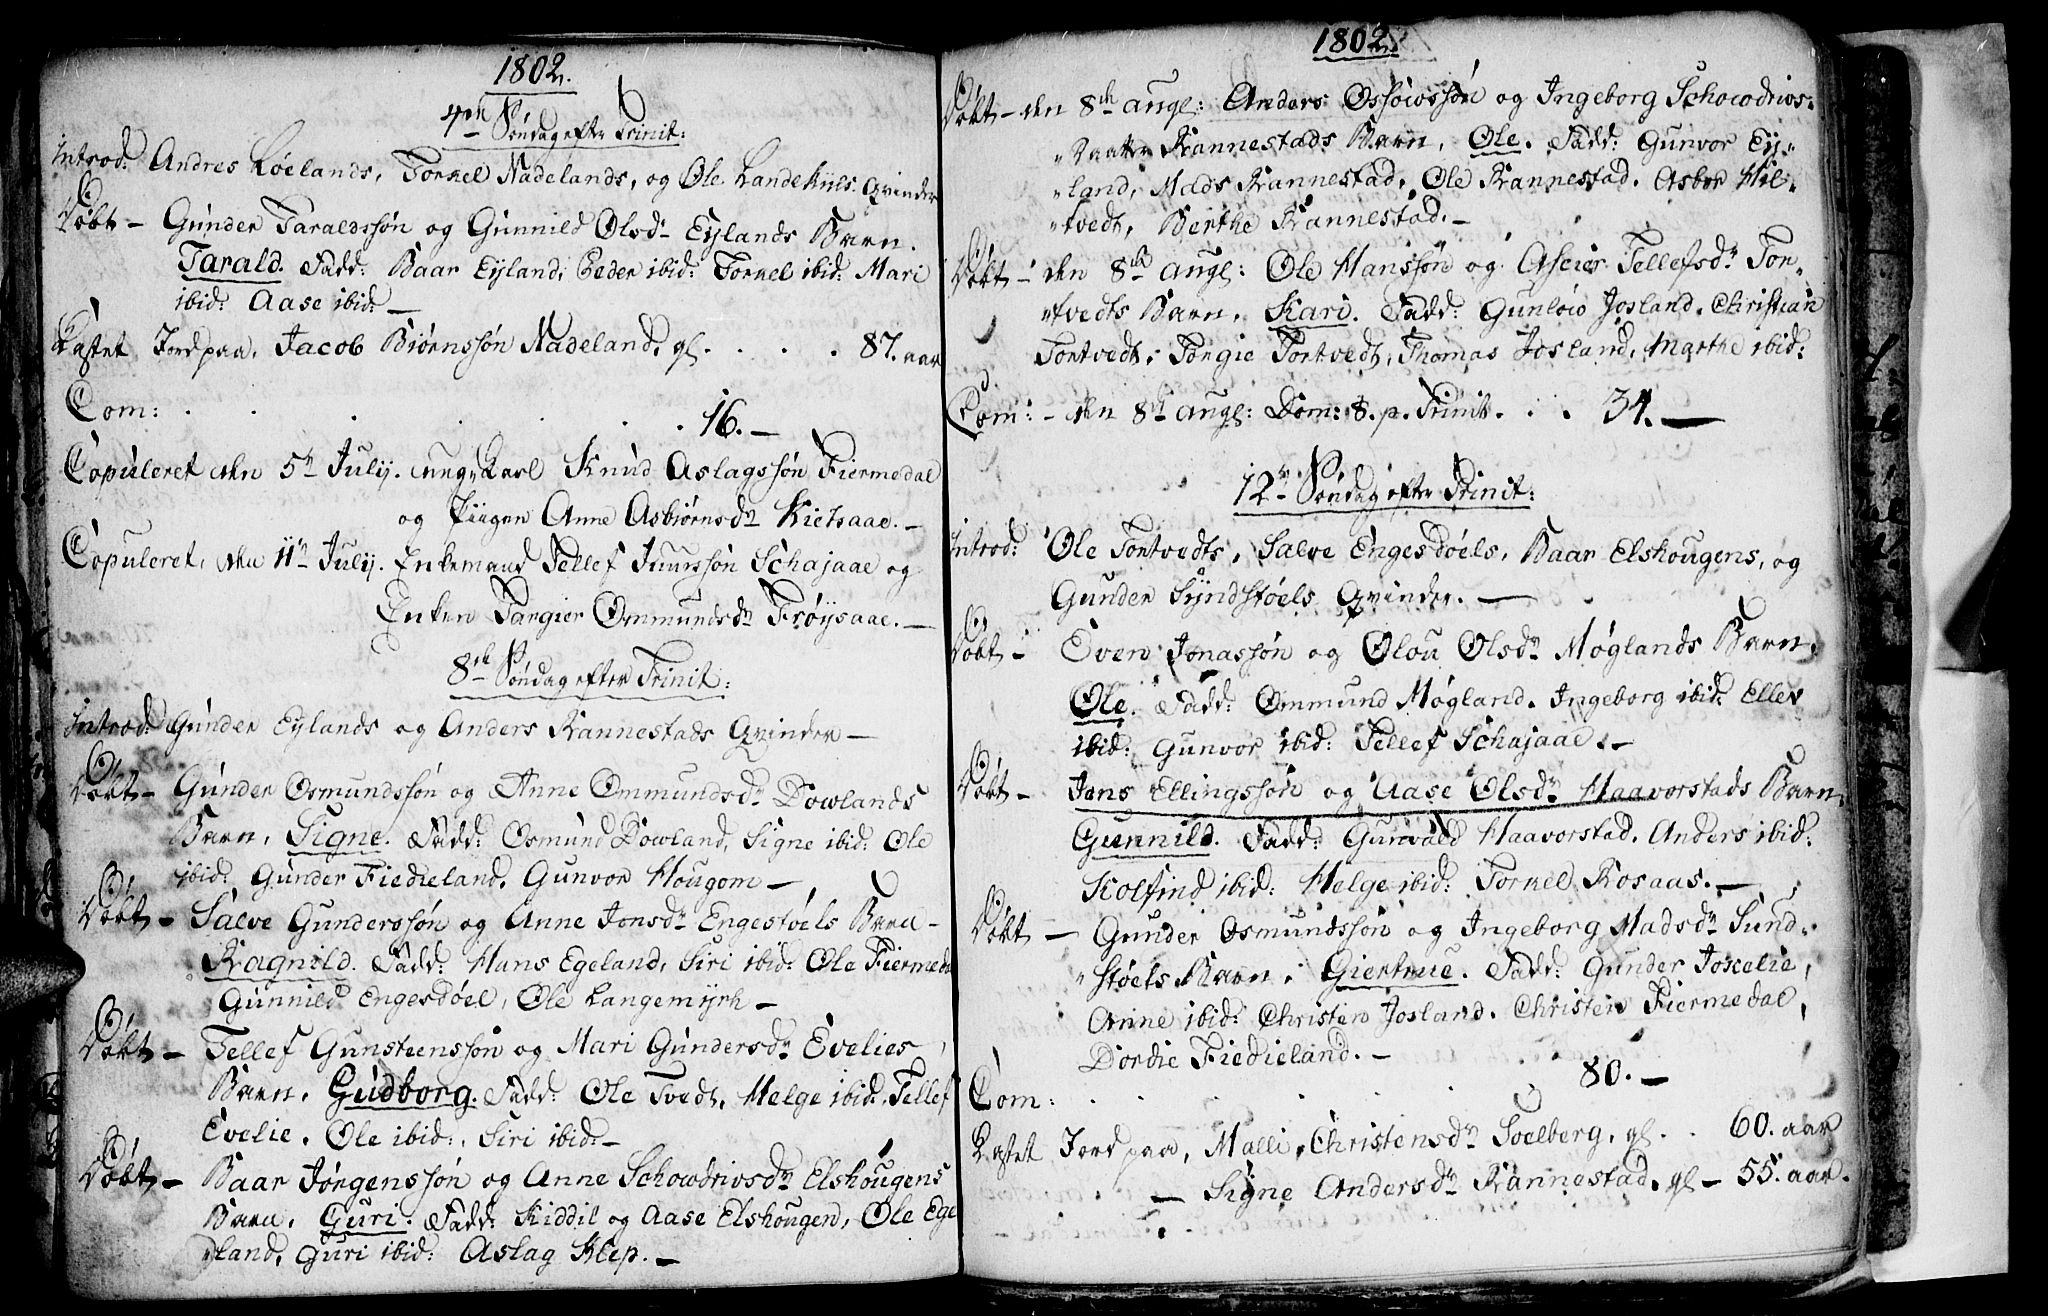 1802.
4de Søndag efter Trinit:
Introd: Andres Løelands, Torkel Nadelands, og Ole Landekiils Qvinder
Døbt – Gunder Taraldssøn og Gunnild Olsdr Eylands Barn.
Tarald. Fadd: Baar Eyland, Peder ibid: Torkel ibid: Mari
ibid: Aase ibid: –
Kastet Jord paa, Jacob Biørnssøn Nadeland, gl. . . . . 87. aar
Com: . . . . . . 16. –
Copuleret den 5te July. ung Karl Knud Aslagssøn Fiermedal
og Piigen Anne Asbiørnsdr Kietsaae. –
Copuleret, den 11te July. Enkemand Tellef Juurssøn Schajaae og
Enken Targier Ommundsdr Frøysaae. –
8de Søndag efter Trinit:
Introd: Gunder Eylands og Anders Rannestads Qvinder –
Døbt – Gunder Osmundssøn og Anne Ommundsdr Dowlands
Barn, Signe. Fadd: Osmund Dowland, Signe ibid: Ole
ibid: Gunder Fiedieland. Gunvor Hougom –
Døbt – Salve Gunderssøn og Anne Jonsdr Engestøels Barn –
Ragnild. Fadd: Hans Egeland, Siri ibid: Ole Fiermeda
Gunnild Engesdøel, Ole Langemyrh –
Døbt – Tellef Gunsteenssøn og Mari Gundersdr Evelies
Barn. Gudborg. Fadd: Ole Tvedt, Helge ibid. Tellef
Evelie. Ole ibid:, Siri ibid: –
Døbt – Baar Jørgenssøn og Anne Schowdrivsdr Elshougens
Barn. Guri. Fadd: Kiddil og Aase Elshougen, Ole Ege
land, Guri ibid: Aslag Klep. –
1802.
Døbt – den 8de augl: Anders Ossowssøn og Ingeborg Schowdrivs-
"Daatter Rannestads Barn, Ole. Fadd: Gunvor Ey-
"land, Mads Rannestad, Ole Rannestad. Asbor Mil-
"tvedt, Berthe Rannestad. –
Døbt – den 8de augl: Ole Hanssøn og Aseier Tellefsdr Tor-
"tvedts Barn. Kari. Fadd: Gunløw Josland. Christian
Tortvedt, Torgie Tortvedt, Thomas Josland, Marthe ibid:
Com: – den 8de augl: Dom: 8. p. Trinit. . . . 34. –
12te Søndag efter Trinit:
Introd: Ole Tortvedts, Salve Engesdøels, Baar Elshougens, og
Gunder Syndstøels Qvinder. –
Døbt – Even Jonassøn og Olou Olsdr Møglands Barn.
Ole. Fadd: Ommund Møgland. Ingeborg ibid: Ellev
ibid: Gunvor ibid: Tellef Schajaae. –
Døbt – Jens Ellingssøn og Aase Olsdr Haavorstads Barn.
Gunnild. Fadd: Gunvald Haavorstad. Anders ibid:
Kolfind ibid: Helge ibid: Torkel Rosaas. –
Døbt – Gunder Osmundssøn og Ingeborg Madsdr Sund-
"støels Barn. Giertrue. Fadd: Gunder Joxelie,
Anne ibid: Christen Josland. Christen Fiermedal,
Dordie Fiedieland. –
Com: . . . . . 80. –
Kastet Jord paa, Malli Christensdr Soelberg, gl. . 60. aar
– Signe Andersdr Rannestad. gl – 55. aar.